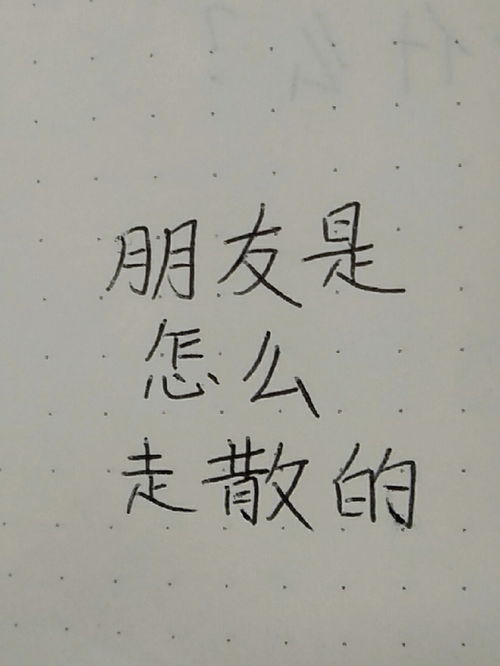 什么?
朋友是
怎么
走散的